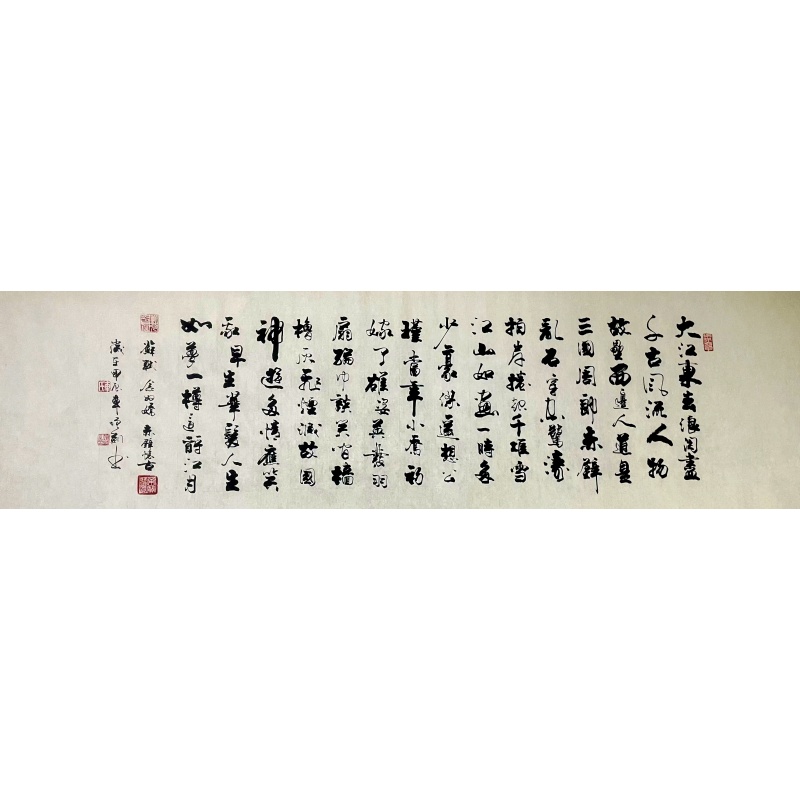 大江東去浪淘盡
千古風流人物
故壘西邊人道是
三國周郎赤壁
亂石穿空驚濤
拍岸捲起千堆雪
江山如畫一時多
少豪傑遙想公
瑾當年小喬初
嫁了雄姿英發羽
扇綸巾談笑間檣
櫓灰飛煙滅故國
神遊多情應笑
我早生華髮人生
如夢一樽還酹江月
蘇軾念奴嬌赤壁懷古
歲在甲辰書